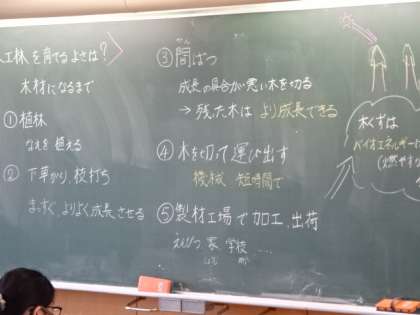 人工林を育てるよさは?
木材になるまで
①植林
なえを植える
② 下草かり、枝打ち
まっすぐ、よりよく成長させる
③間ばつ
かん
成長の具合が悪い木を切る
→ 残た木は より成長できる
④ 木を切って運び出す
機械 短時間で
⑤ 製材工場で加工、出荷
えんぴつ 家 学校 ...
木くずは
バイオエネルギーに
(燃やす